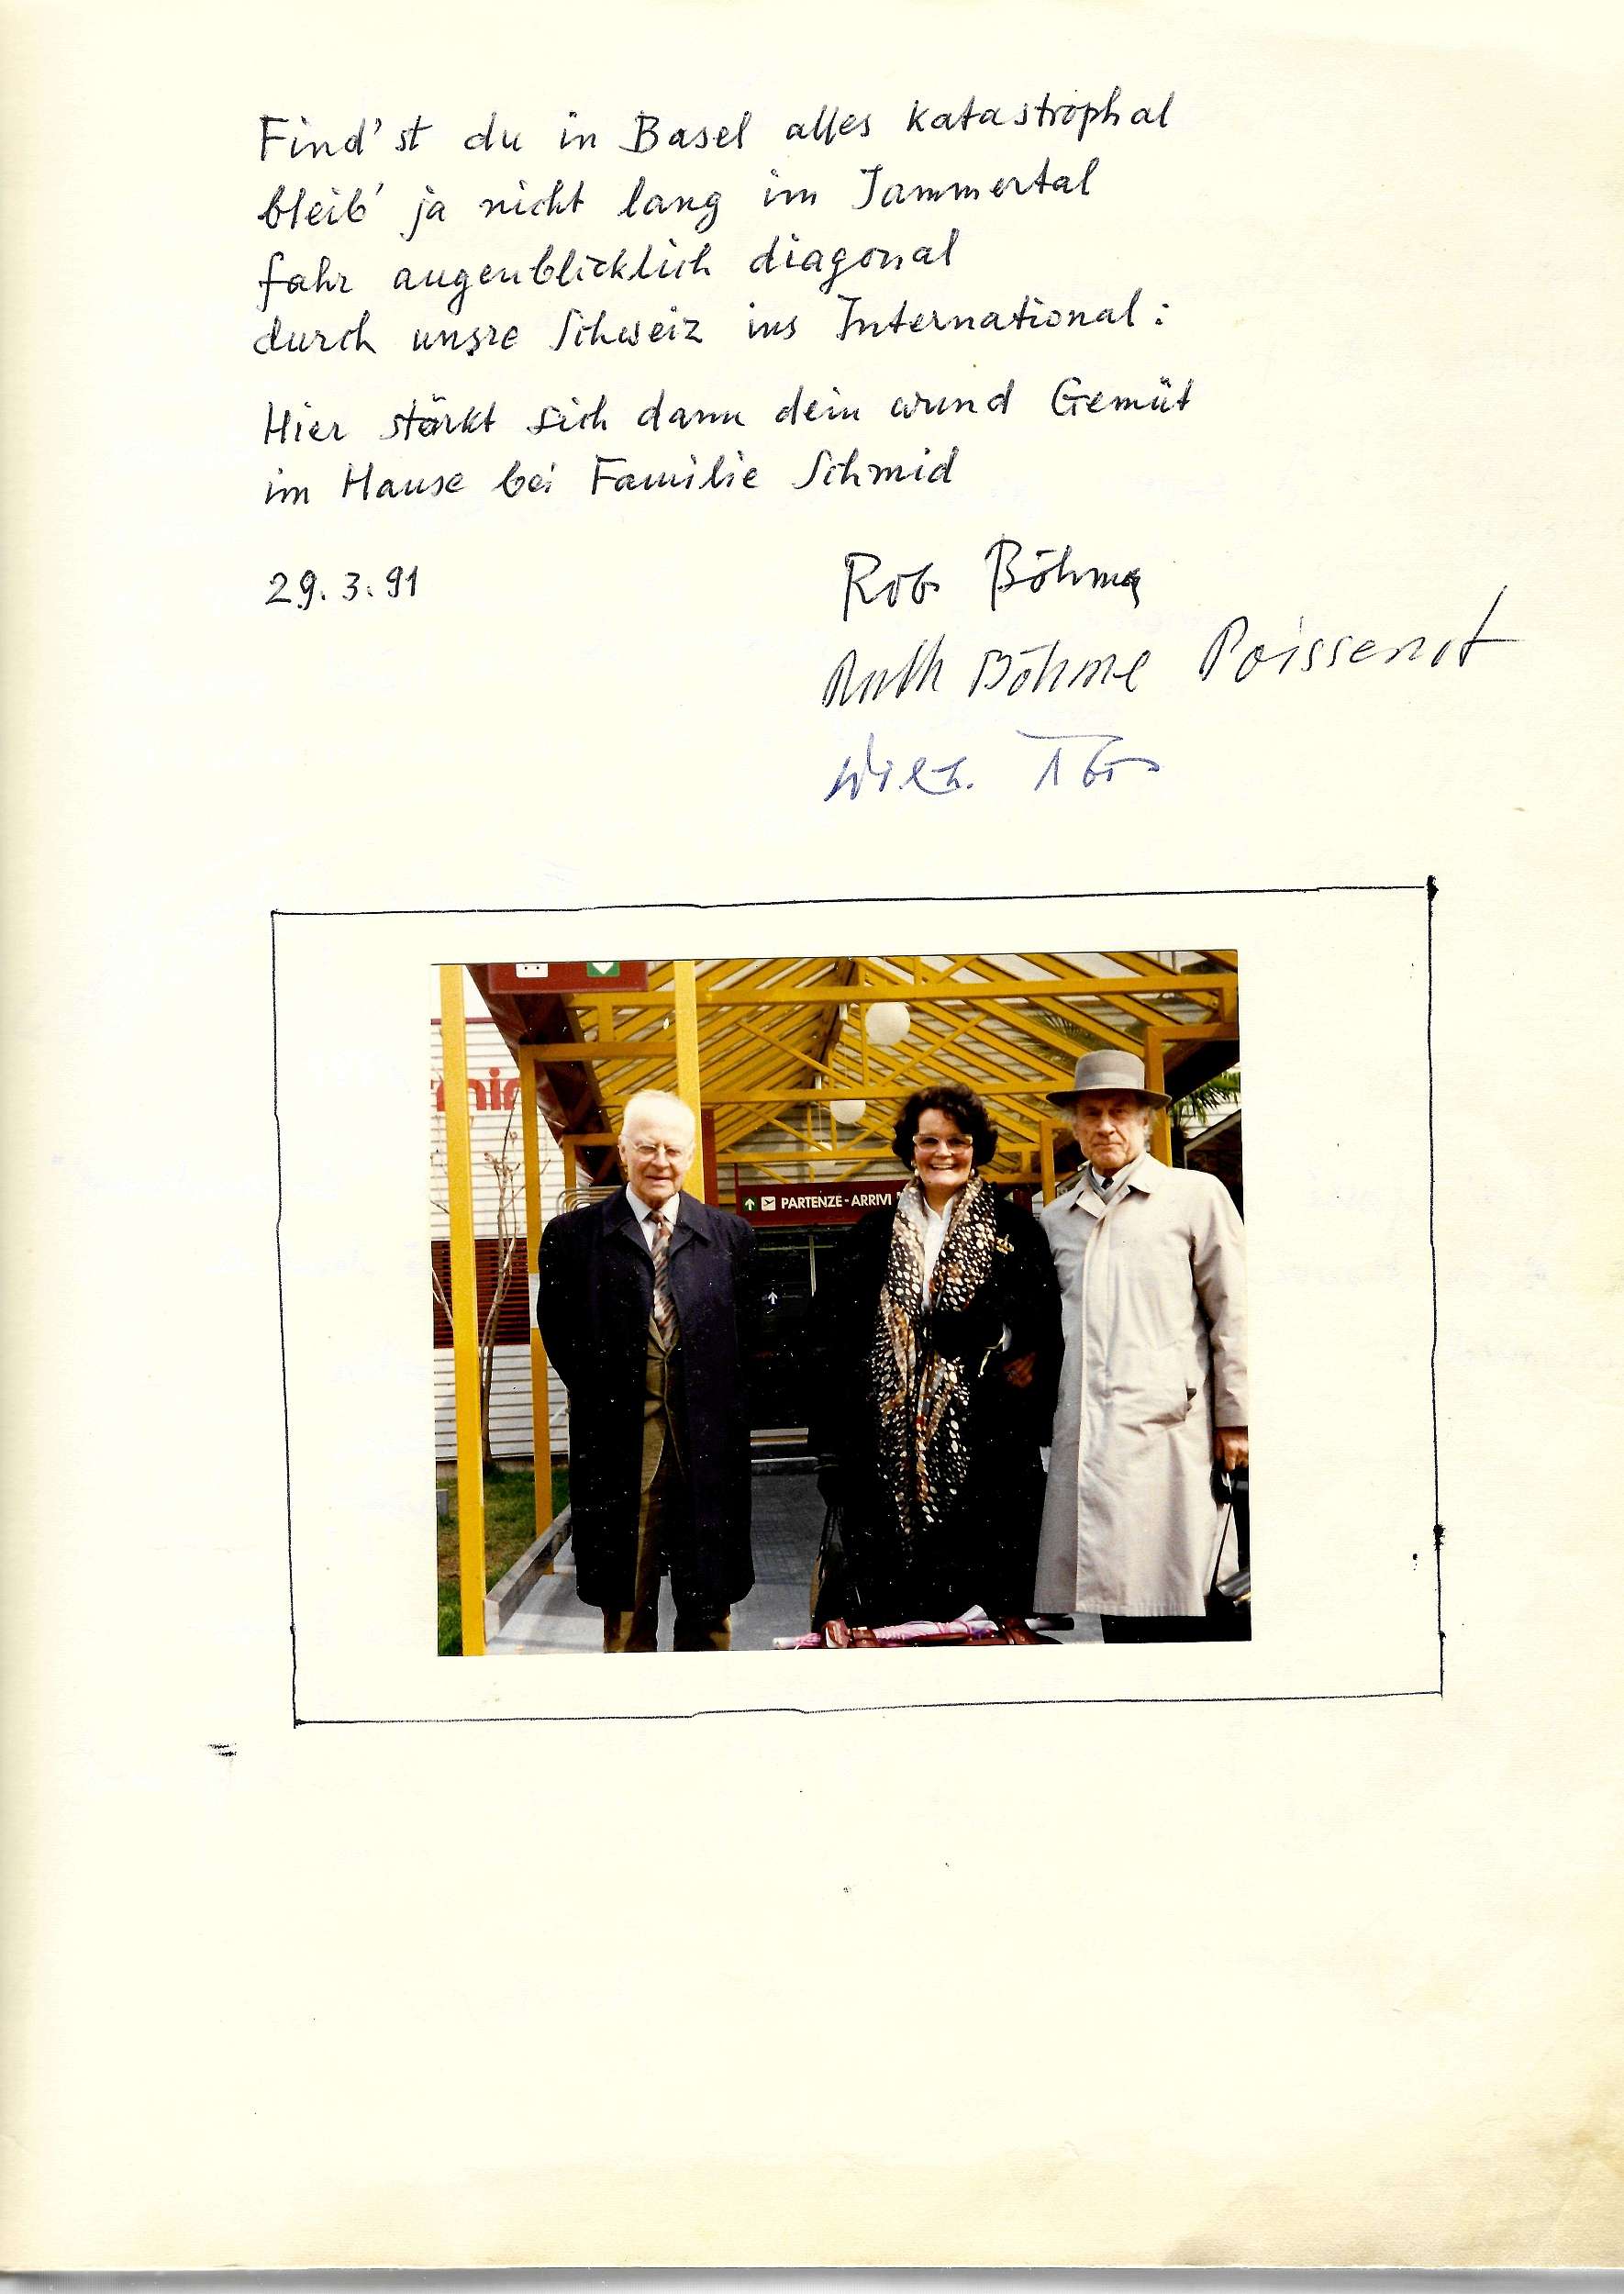 Find'st du in Basel alles katastrophal
bleib' ja nicht lang im Jammertal
fahr augenblicklich diagonal
durch unsre Schweiz ins International:
Hier stärkt sich dann dein wund Gemüt
im Hause bei Familie Schmid
29.3.91
Rob Böhme
Ruth Böhme Poissenot
Wilh.
PARTENZE-ARRIVI